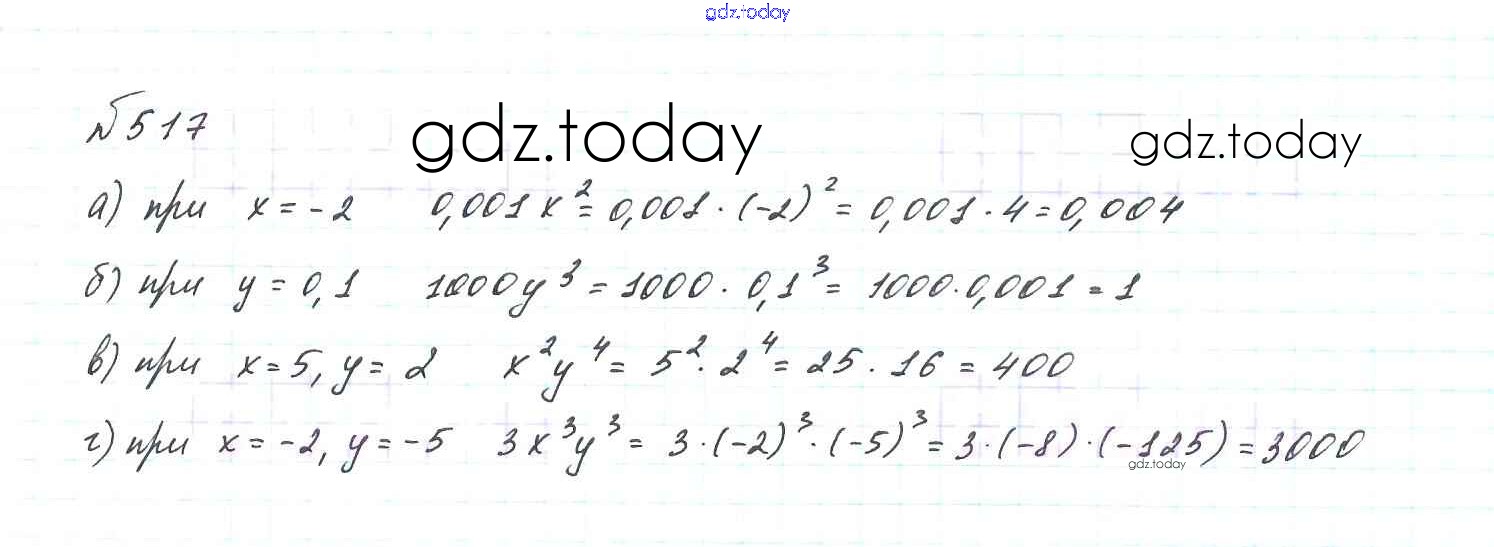 gdz.today
№517
gdz.today gdz.today
а) при x = -2 0,001x² = 0,001 · (-2)² = 0,001 · 4 = 0,004
б) при y = 0,1 1000y³ = 1000 · 0,1³ = 1000 · 0,001 = 1
в) при x = 5, y = 2 x²y⁴ = 5² · 2⁴ = 25 · 16 = 400
г) при x = -2, y = -5 3x³y³ = 3 · (-2)³ · (-5)³ = 3 · (-8) · (-125) = 3000
gdz.today